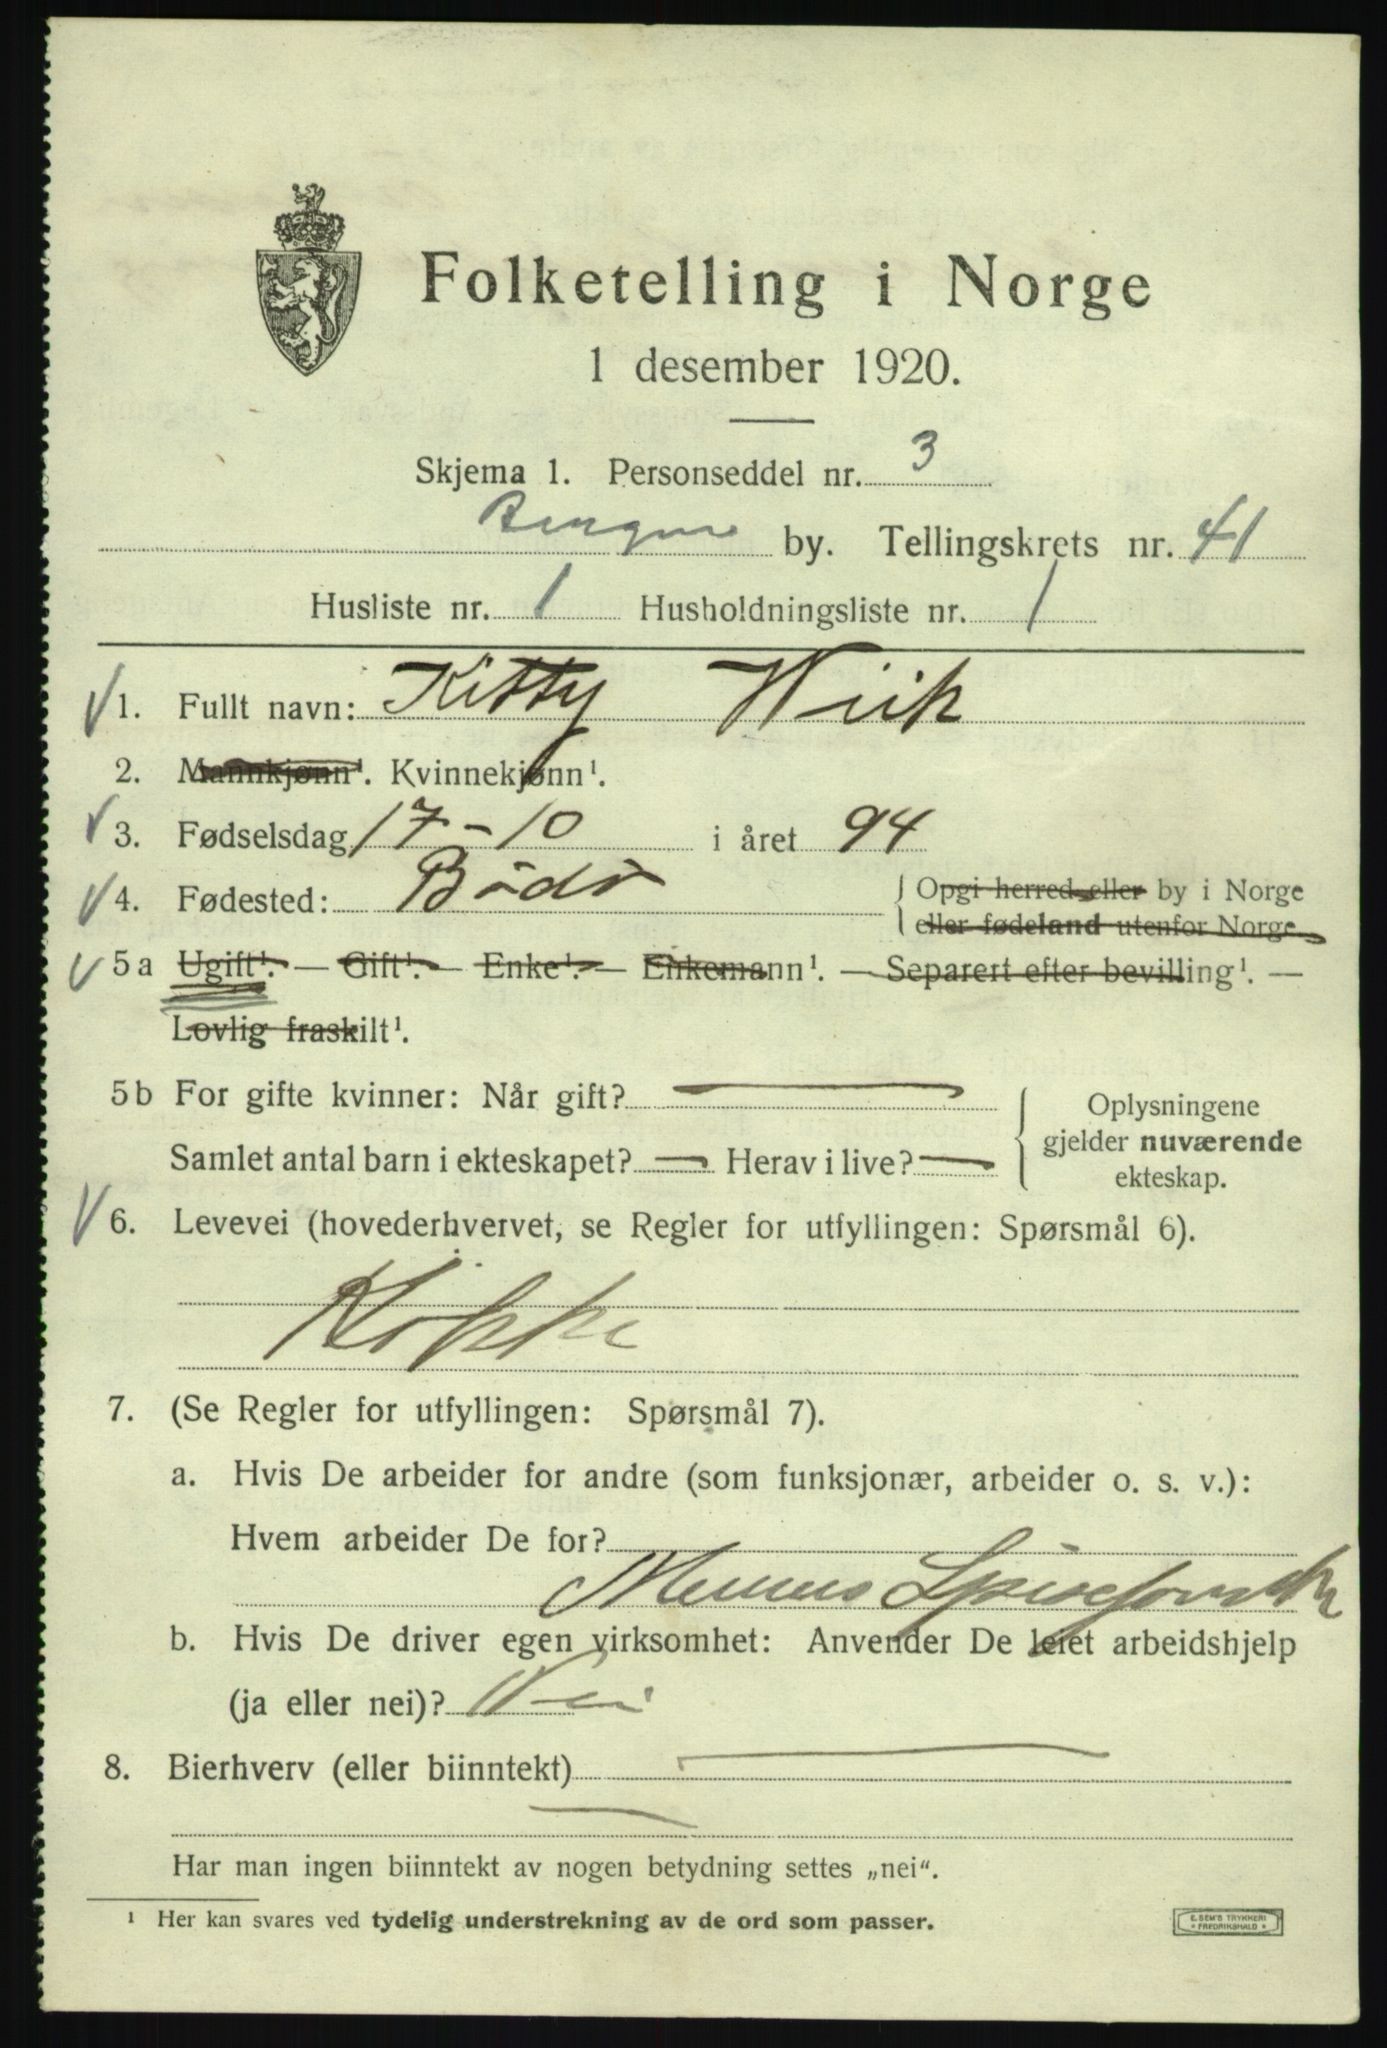 Folketelling i Norge
1 desember 1920.
Skjema 1. Personseddel nr. 3
Bergen by. Tellingskrets nr. 41
Husliste nr. 1 Husholdningsliste nr. 1
1. Fullt navn: Kitty Wiik
2. Mannkjønn¹. Kvinnekjønn¹.
3. Fødselsdag 17-10 i året 94
4. Fødested: Bodö { Opgi herred eller by i Norge
eller fødeland utenfor Norge.
5a Ugift¹. — Gift¹. — Enke¹. — Enkemann¹. — Separert efter bevilling¹. —
Lovlig fraskilt¹.
5b For gifte kvinner: Når gift? —
Samlet antal barn i ekteskapet? — Herav i live? —
Oplysningene
gjelder nuværende
ekteskap.
6. Levevei (hovederhvervet, se Regler for utfyllingen: Spørsmål 6).
Kokke
7. (Se Regler for utfyllingen: Spørsmål 7).
a. Hvis De arbeider for andre (som funksjonær, arbeider o. s. v.):
Hvem arbeider De for?
b. Hvis De driver egen virksomhet: Anvender De leiet arbeidshjelp
(ja eller nei)? Nei
8. Bierhverv (eller biinntekt) —
—
Har man ingen biinntekt av nogen betydning settes „nei“.
¹ Her kan svares ved tydelig understrekning av de ord som passer.
E. SEM'S TRYKKERI
* FREDRIKSHALD *